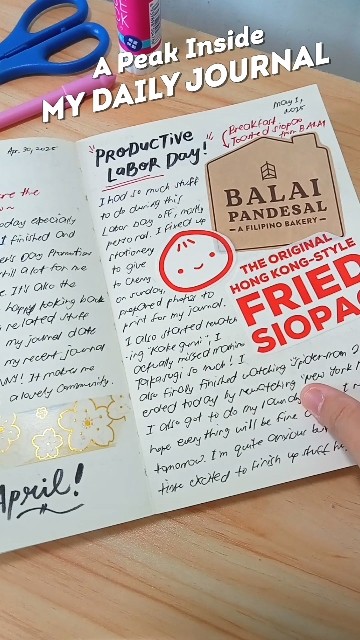 A Peak Inside
MY DAILY JOURNAL
Apr. 30, 2025
oday especially
I finished and
Day Promotion
still a lot for me
It's also the
happy looking back
related stuff
my journal date
my recent journal
It makes me
a lovely community.
April!
May 1, 2025
"PRODUCTIVE
LABOR DAY!"
Breakfast
Toasted siopao
from BALAI
I had so much stuff
to do during this
Labor Day off, mostly
personal. I fixed up
stationery
to give
to Cherry
on Sunday,
prepared photos to
print for my journal.
I also started rewatch-
ing
actually missed
so much! I
also firstly finished watching Spider-man 2
ended today by rewatching "New York
I also got to do my laundry
hope everything will be fine
tomorrow. I'm quite anxious but
time excited to finish up stuff
BALAI
PANDESAL
- A FILIPINO BAKERY -
THE ORIGINAL
HONG KONG-STYLE
FRIED
SIOPA